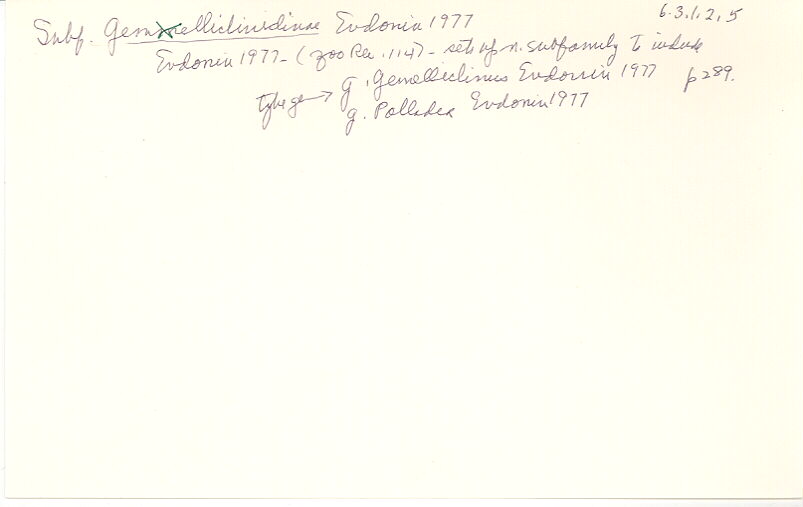 6.3.1.2.5
Subf. Gemelliclinidinae Evdonin 1977
Evdonin 1977 - (Zoo Rec. 114) - sets up n. subfamily to include
type ge → g. Gemelliclinus Evdonin 1977 p 289.
g. Polladea Evdonin 1977